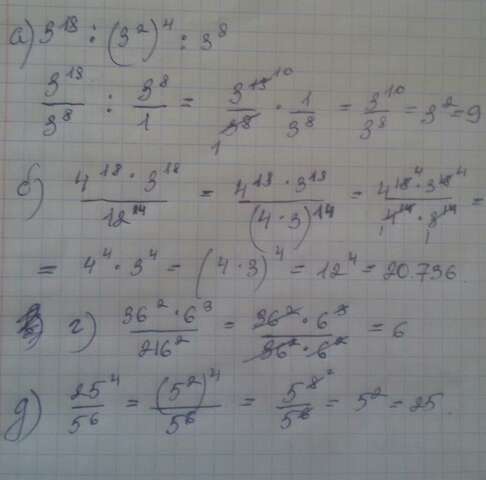 а) 3^18 : (3^2)^4 : 3^8
3^18/3^8 : 3^8/1 = 3^18 10/3^8 1 · 1/3^8 = 3^10/3^8 = 3^2 = 9
б) 4^18 · 3^18/12^14 = 4^18 · 3^18/(4 · 3)^14 = 4^18 4 · 3^18 4/4^14 1 · 3^14 1 =
= 4^4 · 3^4 = (4 · 3)^4 = 12^4 = 20.736
г) 36^2 · 6^3/216^2 = 36^2 · 6^3/36^2 · 6^2 = 6
д) 25^4/5^6 = (5^2)^4/5^6 = 5^8 2/5^6 = 5^2 = 25